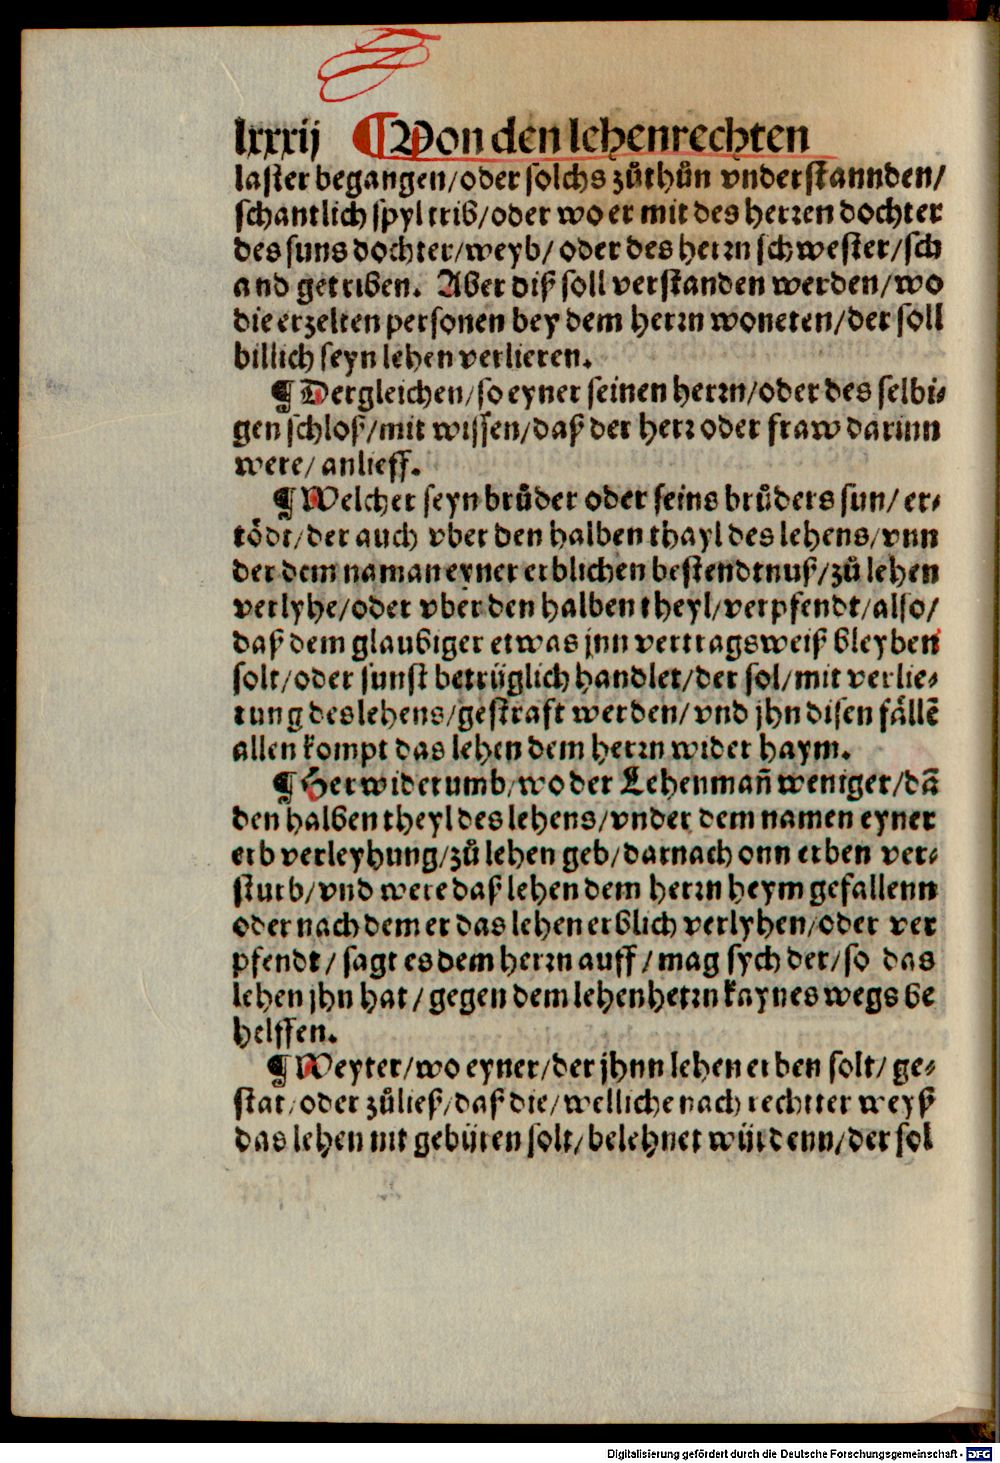 lxxxij ¶ Von den lehenrechten
laster begangen/oder solchs zůthůn vnderstannden/
schantlich spyl trib/oder wo er mit des herren dochter
des suns dochter/weyb/ oder des herrn schwester/sch
and getriben. Aber diß soll verstanden werden/wo
die erzelten personen bey dem herrn woneten/der soll
billich seyn lehen verlieren.
¶ Dergleichen/so eyner seinen herrn/oder des selbi⸗
gen schloß/mit wissen/daß der herr oder fraw darinn
were/ anlieff.
¶ Welcher seyn brůder oder seins brůders sun/ er⸗
tödt/der auch vber den halben thayl des lehens/vnn
der dem naman eyner erblichen bestendtnuß/zů lehen
verlyhe/oder vber den halben theyl/verpfendt/also/
daß dem glaubiger etwas jnn vertragsweiß bleyben
solt/oder sunst betrüglich handlet/der sol/mit verlie⸗
rung des lehens/gestraft werden/vnd jhn disen fällē
allen kompt das lehen dem herrn wider haym.
¶ Herwiderumb/wo der Lehenmañ weniger/dā
den halben theyl des lehens/vnder dem namen eyner
erb verleyhung/zů lehen geb/darnach onn erben ver⸗
sturb/vnd were daß lehen dem herrn heym gefallenn
oder nach dem er das lehen erblich verlyhen/oder ver
pfendt/ sagt es dem herrn auff/mag sych der/so das
lehen jhn hat/gegen dem lehenherrn kaynes wegs be
helffen.
¶ Weyter/wo eyner/der jhnn lehen erben solt/ ge⸗
stat/oder zůließ/daß die/welliche nach rechtter weyß
das lehen nit gebüren solt/belehnet würdenn/der sol
Digitalisierung gefördert durch die Deutsche Forschungsgemeinschaft - DFG